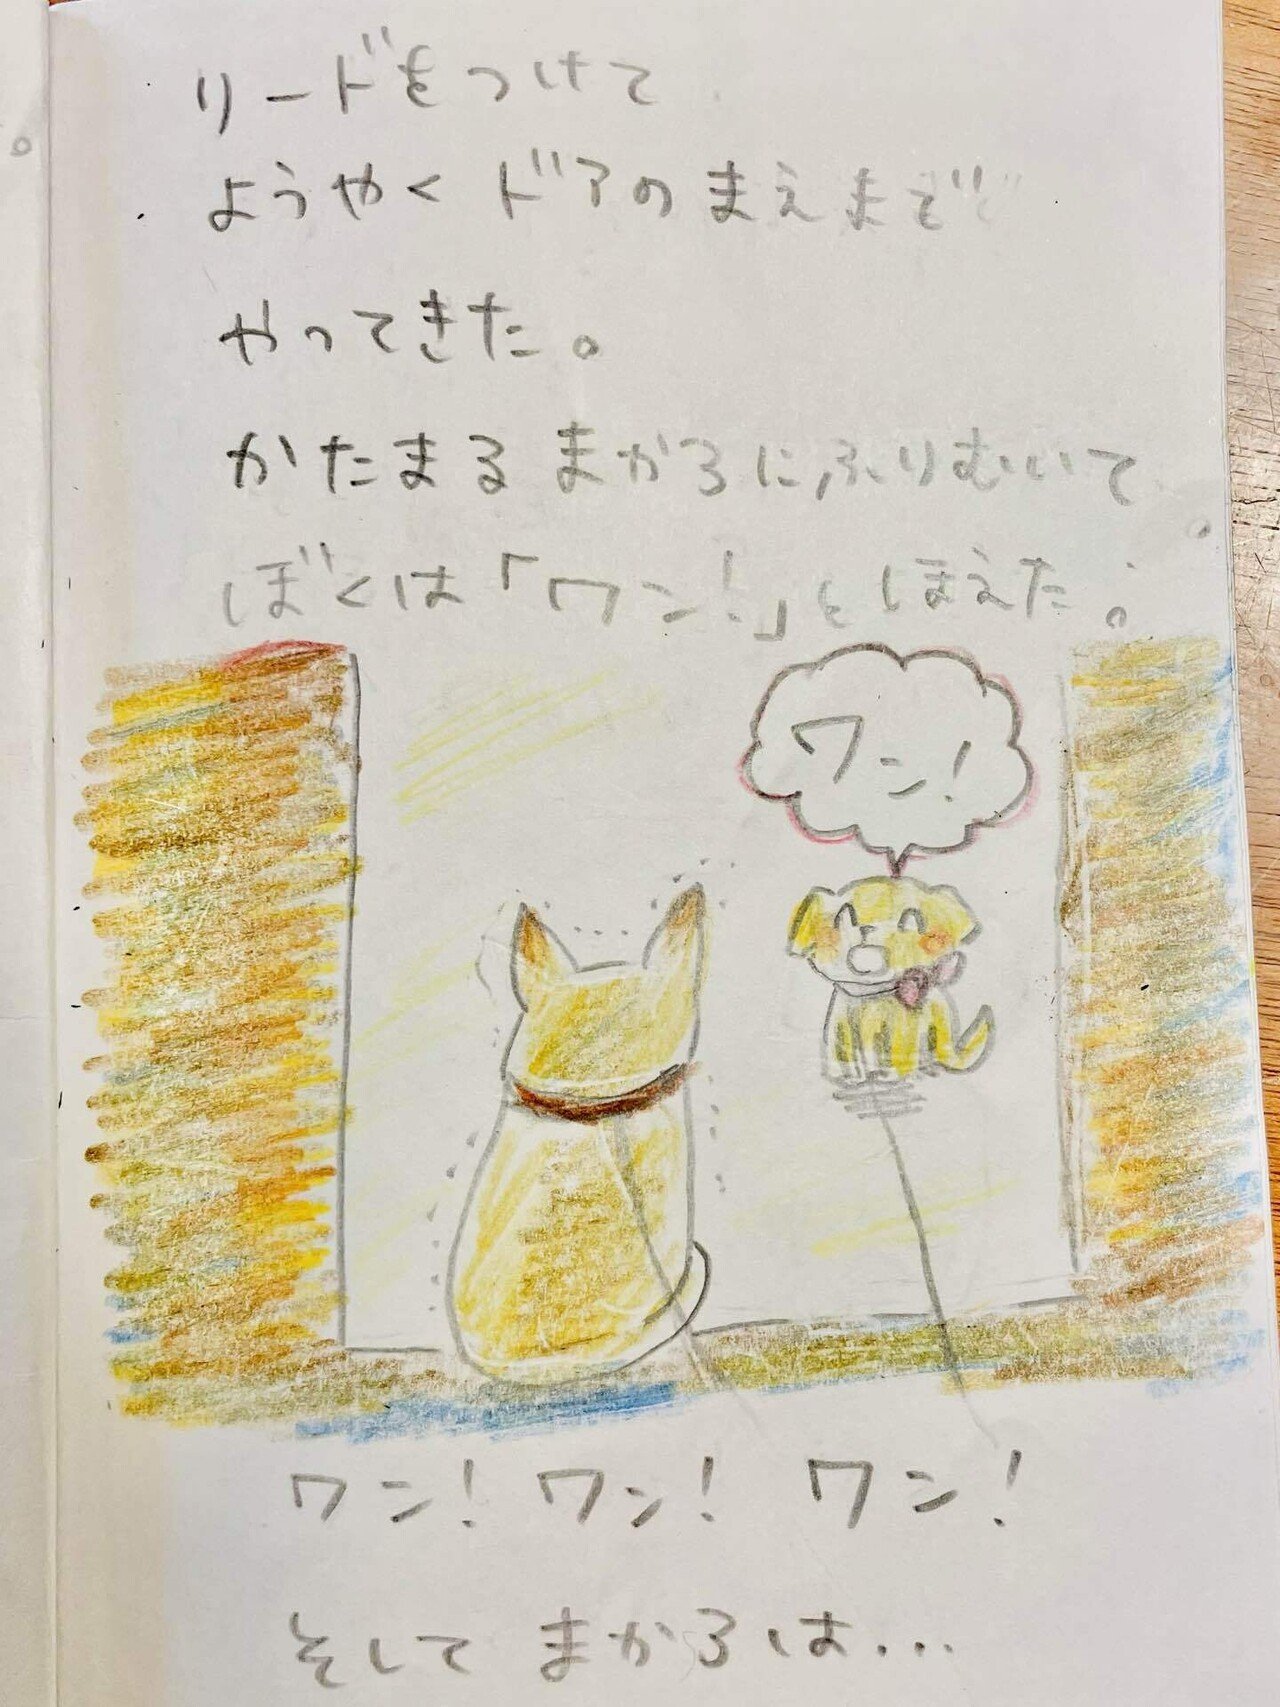 リードをつけて
ようやくドアのまえまで
やってきた。
かたまるまかろにふりむいて
ぼくは「ワン！」とほえた。
ワン！
ワン！ワン！ワン！
そしてまかろは...